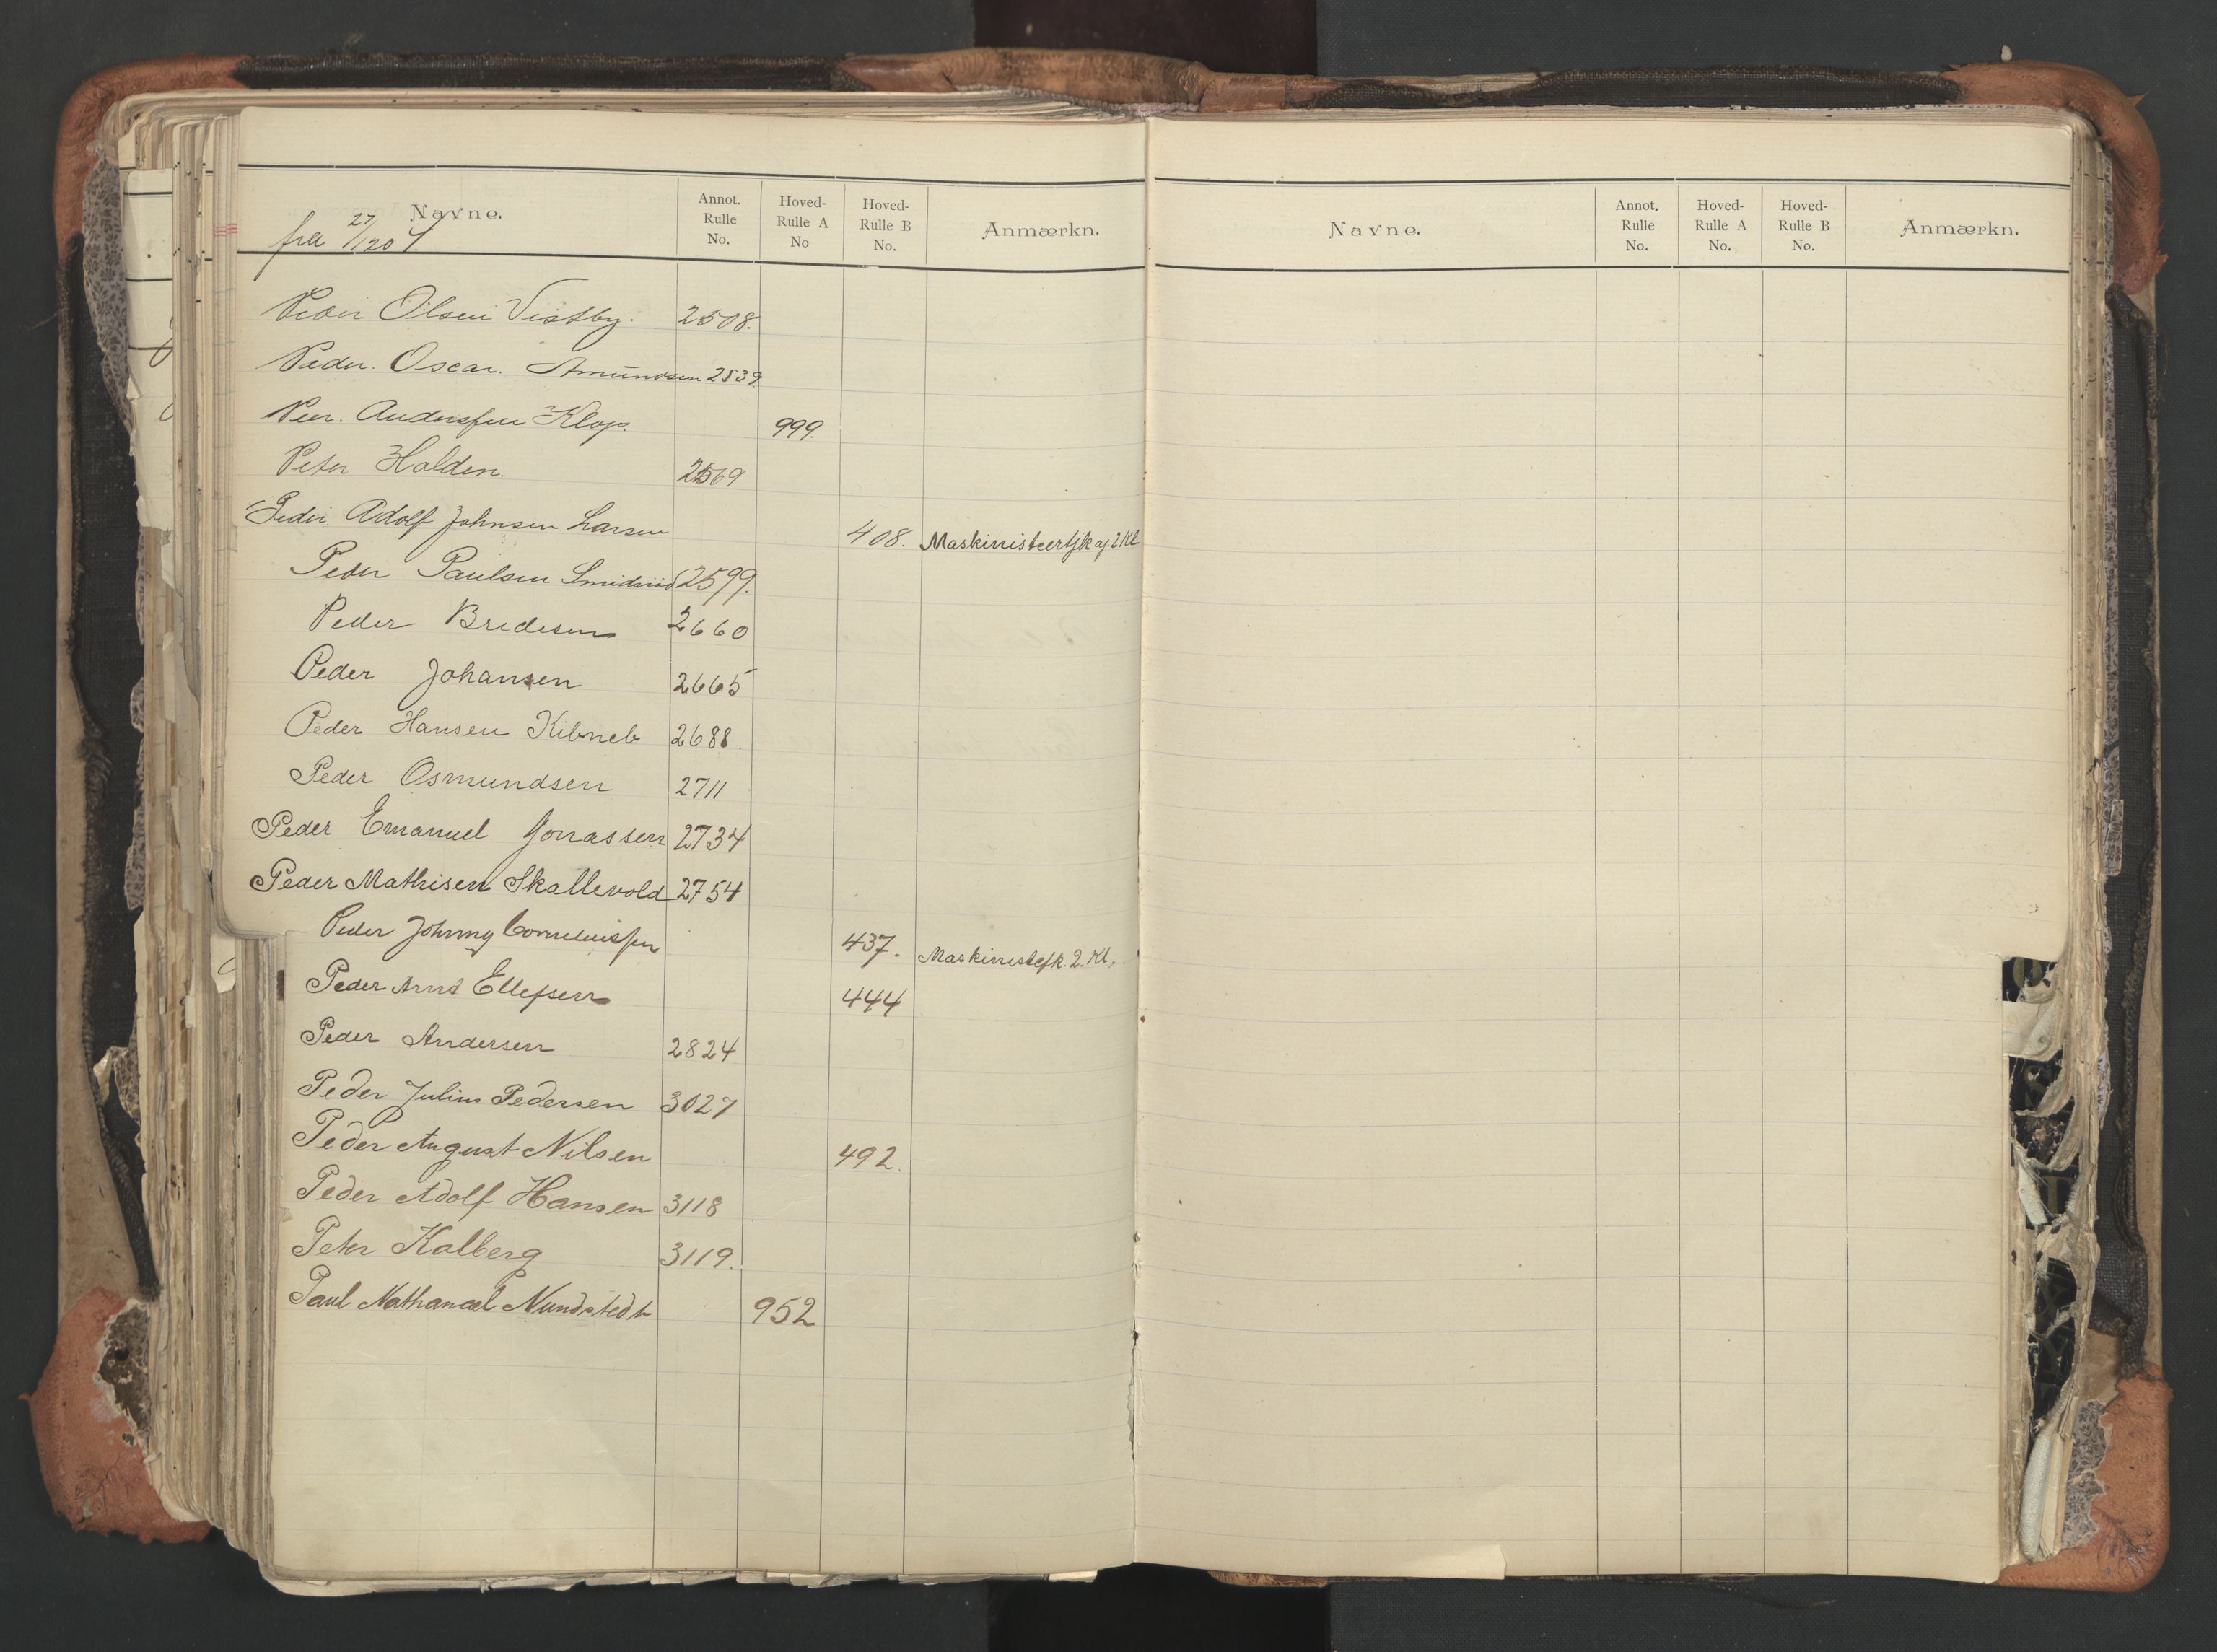 Navne. Annot. Rulle No. Hoved-Rulle A No Hoved-Rulle B No. Anmærkn.
fra 27/1 20
Peder Olsen Vestby. 2508.
Peder. Oscar. Amundsen 2539.
Peer. Anderssen Klop. 999.
Peter Halden. 2569
Peder Adolf Johnsen Larsen 408. Maskinistcertfk af 2 Kl
Peder Paulsen Smidsrød 2599.
Peder Bredesen 2660
Peder Johansen 2665
Peder Hansen 2688.
Peder Osmundsen 2711
Peder Emanuel Jonassen 2734
Peder Mathisen Skallevold 2754
Peder Johnny Corneliussen 437. Maskinistcfk. 2. Kl.
Peder Arnt Ellefsen 444
Peder Andersen 2824
Peder Julius Pedersen 3027
Peder August Nilsen 492.
Peder Adolf Hansen 3118
Peter Kalberg 3119.
Paul Nathanael Nundstedt 952
Navne. Annot. Rulle No. Hoved-Rulle A No. Hoved-Rulle B No. Anmærkn.